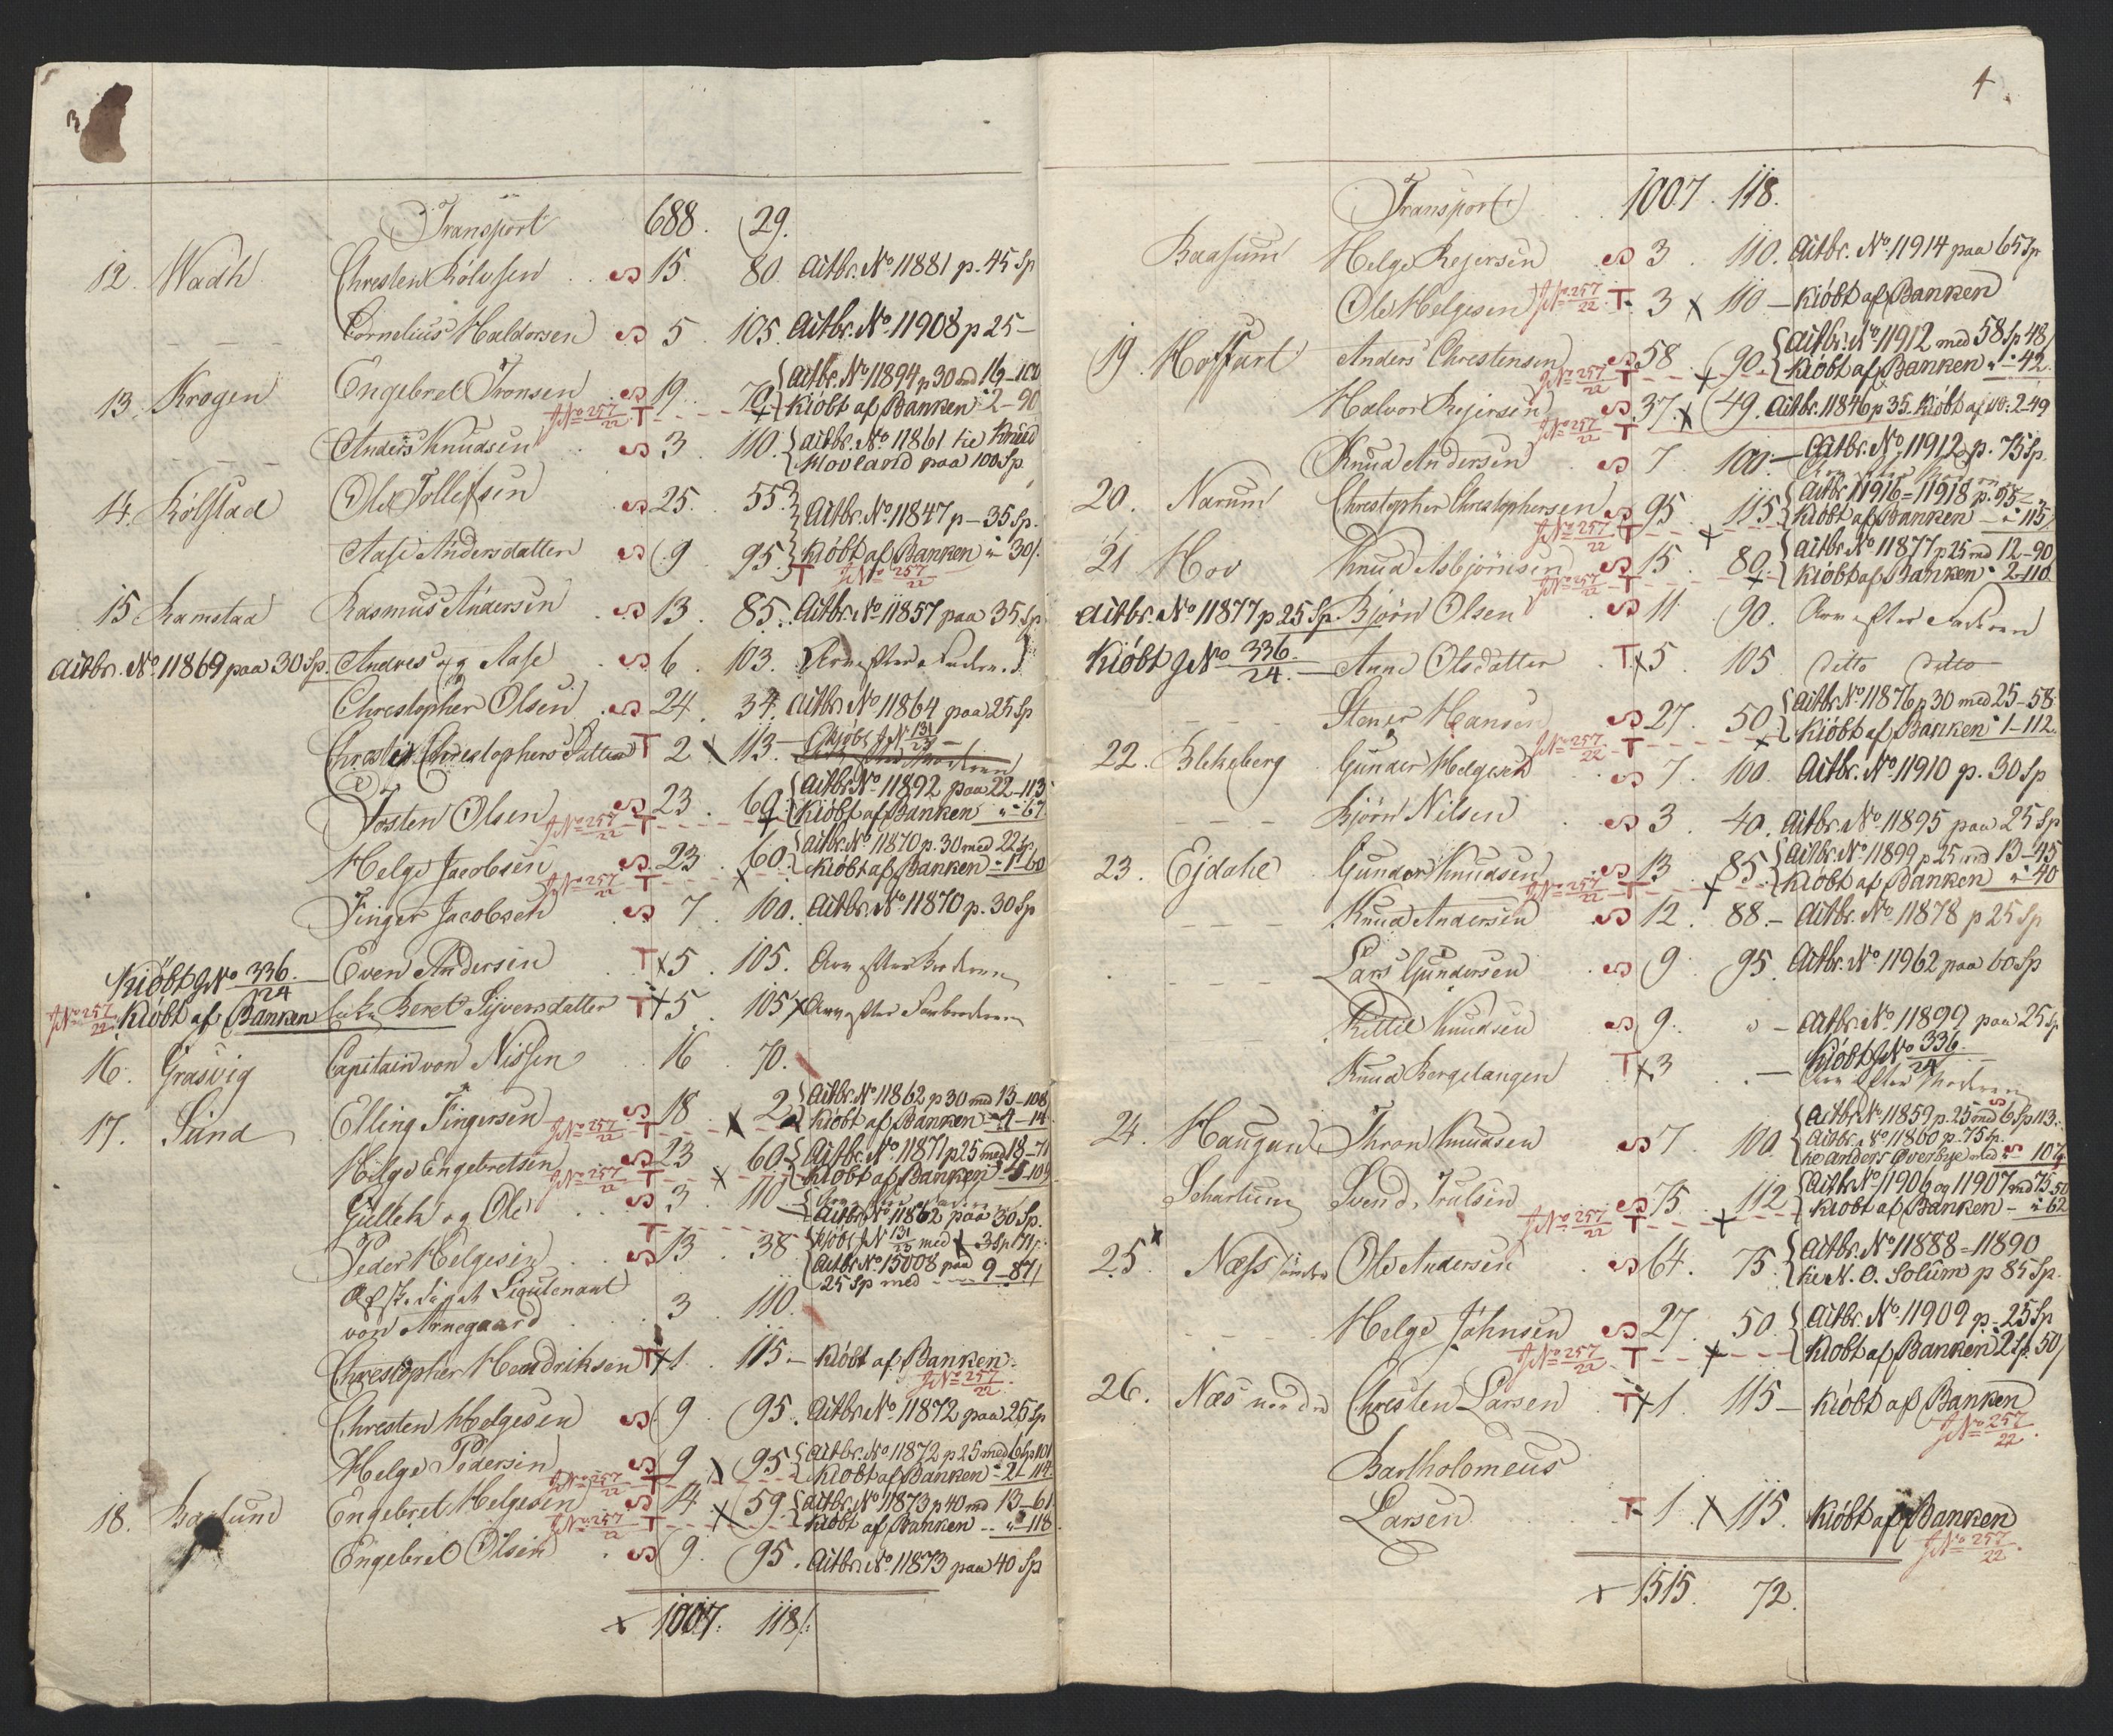 3
Transport 688. 29.
12. Wadh Chresten Rolvsen S 15. 80. Actbr. No. 11881 p. 45 Sp
— — — Cornelius Haldorsen S 5. 105. Actbr. No. 11908 p 25 —
13. Krogen Engebret Tronsen S 19. 70. { Actbr. No. 11894 p 30 med 16-100
J No 257/22 T — — — + { Kiöbt af Banken " 2-90
— — — Anders Knudsen S 3. 110. { Actbr. No. 11861 tie Knud
Klovland paa 100 Sp
14. Kolstad Ole Tollefsen S 25. 55. } Actbr. No. 11847 p — 35 Sp.
Aase Andersdatter S 9 95. } Kiöbt af Banken " 30/.
T J No 257/22
15 Ramstad Rasmus Andersen S 13. 85. Actbr. No 11857 paa 35 Sp
Actbr. No. 11869 paa 30 Sp. Andres og Aase S 6. 103. Arv efter Faderen
Chrestopher Olsen S 24. 34. Actbr. No 11864 paa 25 Sp
Chrestie Chrestophersdatter T 2 X 113. — Kjöbt J No 131/23 —
Josten Olsen S 23. 69. { Actbr. No. 11892 paa 22-113
J No 257/22 T — — — + { Kiöbt af Banken " - 67
Helge Jacobsen S 23. 60. { Actbr. No 11870 p. 30 med 22 Sp
J No 257/22 T — — — X { Kiöbt af Banken - 1-60
Finger Jacobsen S 7. 100. Actbr. No 11870 p. 30 Sp
Kiöbt J No 336/24 — Even Andersen T X 5. 105. Arv efter Broderen
J No 257/22 Kiöbt af Banken Beret Sijversdatter T + 5. 105 X Arv efter Farbroderen
16. Grasvig Capitain von Nissen 16 70.
17. Sund Elling Fingersen S 18. 2 { Actbr. No 11862 p 30 med 13-108
J No 257/22 T — — — X { Kiöbt af Banken - 4-14
Helge Engebretsen S 23 60 { Actbr. No. 11871 p 25 med 18-71
J No 257/22 T — — — X { Kiöbt af Banken - 4-109
Gullek og Ole S 3. 110 —
Actbr. No 11862 paa 30 Sp.
Peder Helgesen S 13. 38 { Kjöbt J No 131/23 med 3 Sp 71/.
Actbr. No. 15008 paa 9-87/
25 Sp med
Afskediget Lieutenant
von Arnegaard 3. 110.
Chrestopher Hendriksen T + 1. 115 — Kiöbt af Banken
J No 257/22
Chresten Helgesen S 9. 95. Actbr. No. 11872 paa 25 Sp
Helge Pedersen S 9 95 { Actbr. No 11872 p 25 med 6 Sp 101
J No 257/22 T X { Kiöbt af Banken - 2-114
18. Baasund Engebret Helgesen S 14. 59 { Actbr. No 11873 p 40 med 13-61
J No 257/22 T — — — X { Kiöbt af Banken - " - 118
Engebret Olsen S 9. 95. Actbr. No. 11873 paa 40 Sp
X 1007. 118/.
4
Transport 1007. 118.
Baasund Helge Rejersen S 3. 110. Actbr. No. 11914 paa 65 Sp
Ole Helgesen J No 257/22 T 3 X 110 — Kiöbt af Banken
19. Hoffart Anders Chrestensen S 58 90 { Actbr. No 11912 med 58 Sp 48/
J No 257/22 T — — + { Kiöbt af Banken " - 42.
Halvor Rejersen S 37. X 49. Actbr. 11846 p 35. Kiöbt af do: 2-49
J No 257/22 T
Knud Andersen S 7. 100 — Actbr. No. 11912 p. 75 Sp.
20. Narum Chrestopher Chrestophersen S 95 115 { Actbr 11916 = 11918 p. 95 —
J No 257/22 T — — + { Kiöbt af Banken — " 115/
21 Hov Knud Asbjörnsen S 15. 80. { Actbr. No 11877 p 25 med 12-90
J No 257/22 T — — + { Kiöbt af Banken - 2-110
Actbr. No 11877 p 25 Sp Björn Olsen S 11. 90. Arv efter Faderen
Kiöbt J No 336/24. — Anne Olsdatter T X 5. 105 ditto ditto
— — — Stener Hansen S 27. 50 { Actbr. No 11876 p 30 med 25-58
J No 257/22 T — — X { Kiöbt af Banken " 1-112.
22. Blekeberg Gunder Helgesen S 7. 100. Actbr. No. 11910 p. 30 Sp
— — — Björn Nilsen S 3. 40. Actbr. No 11895 paa 25 Sp
23. Ejdahl Gunder Knudsen S 13. 85 { Actbr. No. 11899 p 25 med 13-45
J No 257/22 T — — + { Kiöbt af Banken " 40
— — — Knud Andersen S 12. 88. — Actbr. No. 11878 p 25 Sp
— — — Lars Gundersen S 9. 95. Actbr. No. 11962 paa 60 Sp
Kittil Knudsen S 9. " — Actbr. No. 11899 paa 25 Sp
Knud Bergelangen T X 3 . — Kiöbt J No 336/24
Arv efter Moderen
24. Haugan Thron Knudsen S 7. 100. { Actbr. No 11859 p. 25 med 6 Sp 113.
Actbr. No 11860 p. 75 Sp.
tie Anders Overbye med " 107
Scharlund Svend Trulsen S 75. 112 { Actbr. No 11906 og 11907 med 75-50
J No 257/22 T — — + { Kiöbt af Banken — " 62
25. Næss söndre Ole Andersen S 64. 75. { Actbr. No. 11888 = 11890
tie N. O. Solum p 85 Sp.
— — — Helge Johnsen S 27. 50 { Actbr. No. 11909 p. 25 Sp
J No 257/22 T — — + { Kiöbt af Banken 2 Sp. 50/
26. Næs nordre Chresten Larsen T + 1. 115 — Kiöbt af Banken
J No 257/22
Bartholomeus
Larsen T 1. X 115. Kiöbt af Banken
J No 257/22.
X 1515. 72.